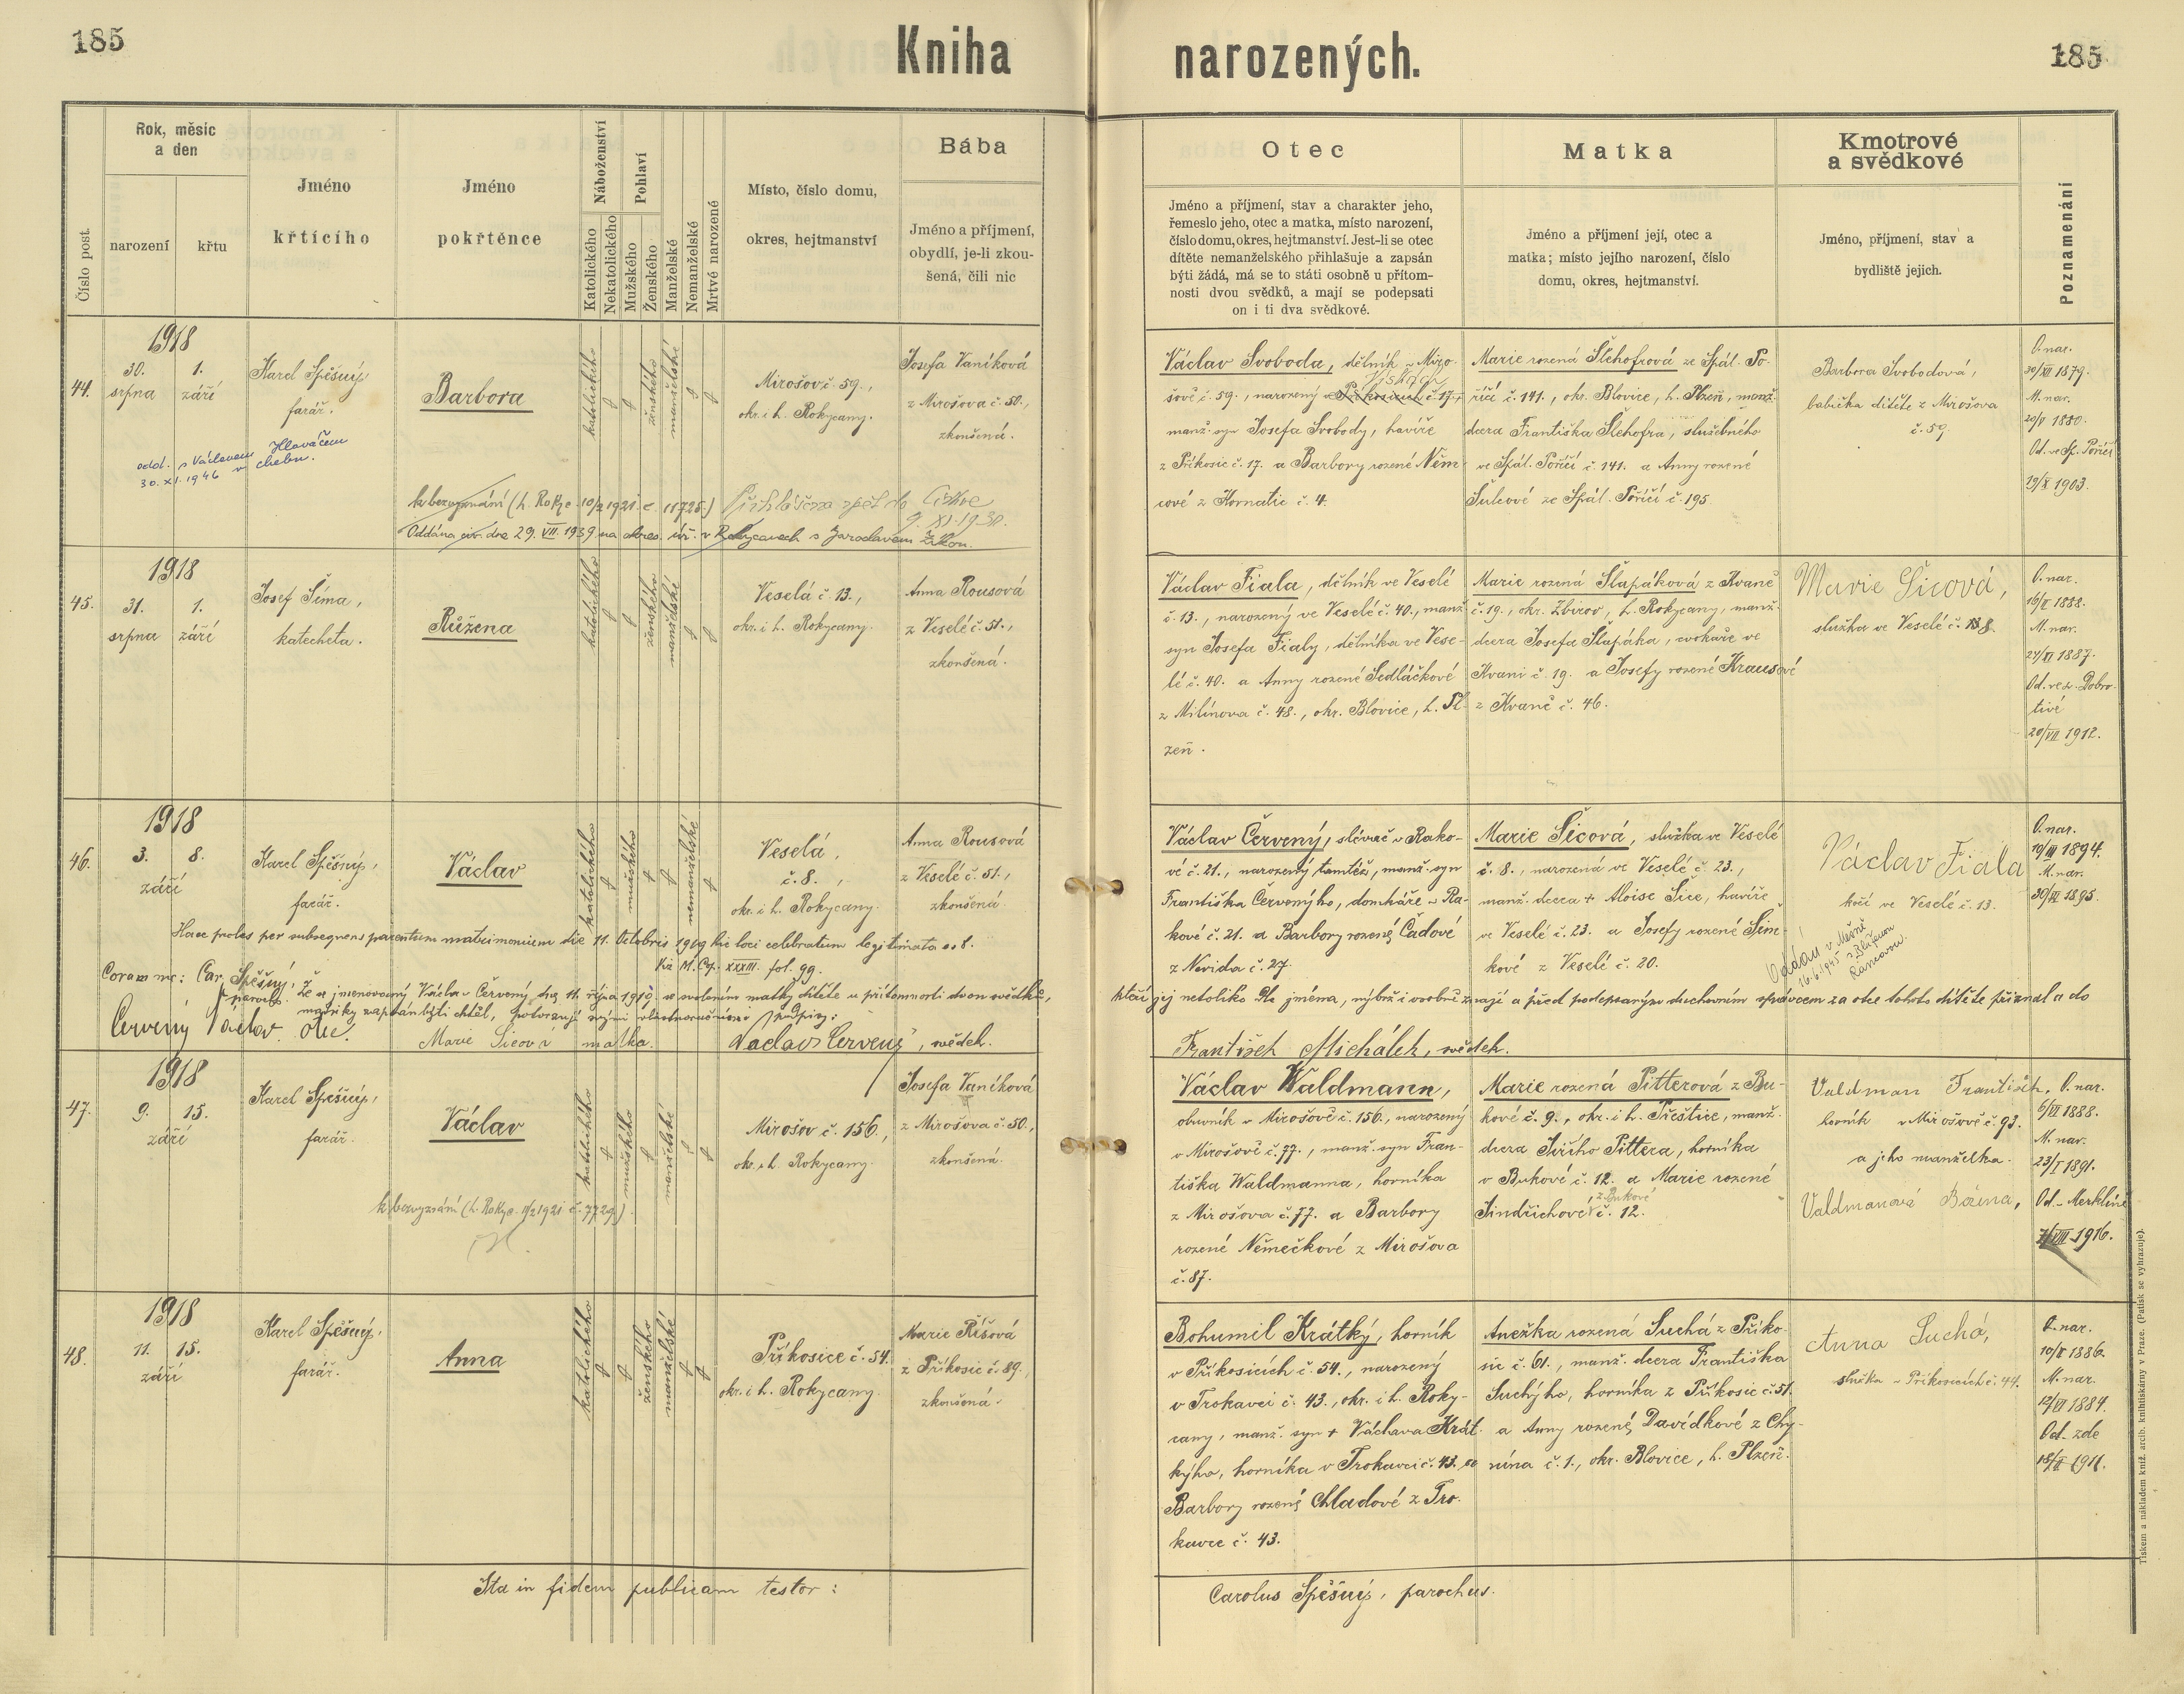 185
Kniha
narozených.
185
Číslo post.
Rok, měsíc
a den
narození
křtu
Jméno
křtícího
Jméno
pokřtěnce
Náboženství
Katolického
Nekatolického
Pohlaví
Mužského
Ženského
Manželské
Nemanželské
Mrtvé narozené
Místo, číslo domu,
okres, hejtmanství
Bába
Jméno a příjmení,
obydlí, je-li zkou-
šená, čili nic
Otec
Jméno a příjmení, stav a charakter jeho,
řemeslo jeho, otec a matka, místo narození,
číslo domu, okres, hejtmanství. Jest-li se otec
dítěte nemanželského přihlašuje a zapsán
býti žádá, má se to státi osobně u přítom-
nosti dvou svědků, a mají se podepsati
on i ti dva svědkové.
Matka
Jméno a příjmení její, otec a
matka; místo jejího narození, číslo
domu, okres, hejtmanství.
Kmotrové
a svědkové
Jméno, příjmení, stav a
bydliště jejich.
Poznamenání
44.
1918
30.
srpna
1.
září
Karel Spěšný,
farář.
Barbora
katolického
ženského
manželské
Mirošov č. 59.,
okr. i h. Rokycany.
Josefa Vaníková
z Mirošova č. 50.,
zkoušená.
odd. s Václavem Hlaváčem
30. XI. 1946 v Chebu.
k bezvyznání (h. Rokyc. 10/2 1921 č. 11725.) Přihlášena zpět do Církve
9. XI. 1930.
Oddána civ. dne 29. VII. 1939 na okres. úř. v Rokycanech s Jaroslavem
Václav Svoboda, dělník v Miro-
šově č. 59., narozený v Příkosicích č. 17.,
manž. syn Josefa Svobody, havíře
z Příkosic č. 17. a Barbory rozené Něm-
cové z Kornatic č. 4.
Marie rozená Šlehofrová ze Spál. Po-
říčí č. 141., okr. Blovice, h. Plzeň, manž.
dcera Františka Šlehofra, služebného
ve Spál. Poříčí č. 141. a Anny rozené
Šulcové ze Spál. Poříčí č. 195.
Barbora Svobodová,
babička dítěte z Mirošova
č. 59.
O. nar.
30/XII 1879.
M. nar.
20/V 1880.
Od. ve Sp. Poříčí
19/X 1903.
45.
1918
31.
srpna
1.
září
Josef Šíma,
katecheta.
Růžena
katolického
ženského
manželské
Veselá č. 13.,
okr. i h. Rokycany.
Anna Rousová
z Veselé č. 51.,
zkoušená.
Václav Fiala, dělník ve Veselé
č. 13., narozený ve Veselé č. 40., manž.
syn Josefa Fialy, dělníka ve Vese-
lé č. 40. a Anny rozené Sedláčkové
z Milínova č. 48., okr. Blovice, h. Pl-
zeň.
Marie rozená Šlapáková z Kvaně
č. 19., okr. Zbirov, h. Rokycany, manž.
dcera Josefa Šlapáka, cvokaře ve
Kvani č. 19. a Josefy rozené Krausové
z Kvaně č. 46.
Marie Šicová,
služka ve Veselé č. 8.
O. nar.
16/V 1888.
M. nar.
27/XI 1887.
Od. ve sv. Dobro-
tivé
20/VII 1912.
46.
1918
3.
8.
září
Karel Spěšný,
farář.
Václav
katolického
mužského
nemanželské
Veselá,
č. 8.,
okr. i h. Rokycany.
Anna Rousová
z Veselé č. 51.,
zkoušená.
Haec proles per subsequens parentum matrimonium die 11. Octobris 1919 hic loci celebratum legitimata est.
Vid. M. Cop. XXXIII. fol. 99.
Coram me: Car. Spěšný, parocho.
Že se jmenovaný Václav Červený dne 11. října 1919. se svolením matky dítěte u přítomnosti dvou svědků,
kteří jej netoliko dle jména, nýbrž i osobně znají a před podepsaným duchovním správcem za otce tohoto dítěte přiznal a do
matriky zapsán býti chtěl, potvrzují svými vlastnoručními podpisy:
Červený Václav. otec.
Marie Šicová matka.
Václav Červený, svědek.
František Michálek, svědek.
Václav Červený, slévač v Rako-
vé č. 21., narozený tamtéž, manž. syn
Františka Červenýho, domkáře v Ra-
kové č. 21. a Barbory rozené Čadové
z Nevida č. 27.
Marie Šicová, služka ve Veselé
č. 8., narozená ve Veselé č. 23.,
manž. dcera + Aloise Šice, havíře
ve Veselé č. 23. a Josefy rozené Šim-
kové z Veselé č. 20.
Václav Fiala
kočí ve Veselé č. 13.
Oddán v Mešně
16.6.1945 s Blaženou
O. nar.
19/III 1894.
M. nar.
30/III 1895.
47.
1918
9.
15.
září
Karel Spěšný,
farář.
Václav
katolického
mužského
manželské
Mirošov č. 156.,
okr. i h. Rokycany.
Josefa Vaníková
z Mirošova č. 50.,
zkoušená.
k bezvyznání (h. Rokyc. 11/2 1921 č. 7729.)
Václav Waldmann,
obuvník v Mirošově č. 156., narozený
v Mirošově č. 77., manž. syn Fran-
tiška Waldmanna, horníka
z Mirošova č. 77. a Barbory
rozené Němečkové z Mirošova
č. 87.
Marie rozená Pitterová z Bu-
kové č. 9., okr. i h. Přeštice, manž.
dcera Jiřího Pittera, horníka
v Bukové č. 12. a Marie rozené
Jindřichové z Bukové č. 12.
Valdman František,
horník v Mirošově č. 93.
a jeho manželka.
Valdmanová Božena,
O. nar.
6/VII 1888.
M. nar.
23/I 1891.
Od. v Merklíně
7/VIII 1916.
48.
1918
11.
15.
září
Karel Spěšný,
farář.
Anna
katolického
ženského
manželské
Příkosice č. 54.
okr. i h. Rokycany.
Marie Říšová
z Příkosic č. 89.,
zkoušená.
Bohumil Krátký, horník
v Příkosicích č. 54., narozený
v Trokavci č. 43., okr. i h. Roky-
cany, manž. syn + Václava Krát-
kýho, horníka v Trokavci č. 43. a
Barbory rozené Chladové z Tro-
kavce č. 43.
Anežka rozená Suchá z Příko-
sic č. 61., manž. dcera Františka
Suchýho, horníka z Příkosic č. 51.
a Anny rozené Davídkové z Chy-
nína č. 1., okr. Blovice, h. Plzeň.
Anna Suchá,
služka v Příkosicích č. 44.
O. nar.
10/X 1886.
M. nar.
12/VI 1884.
Od. zde
18/II 1911.
Ita in fidem publicam testor:
Carolus Spěšný, parochus.
Tiskem a nákladem kníž. arcib. knihtiskárny v Praze. (Patisk se vyhrazuje).